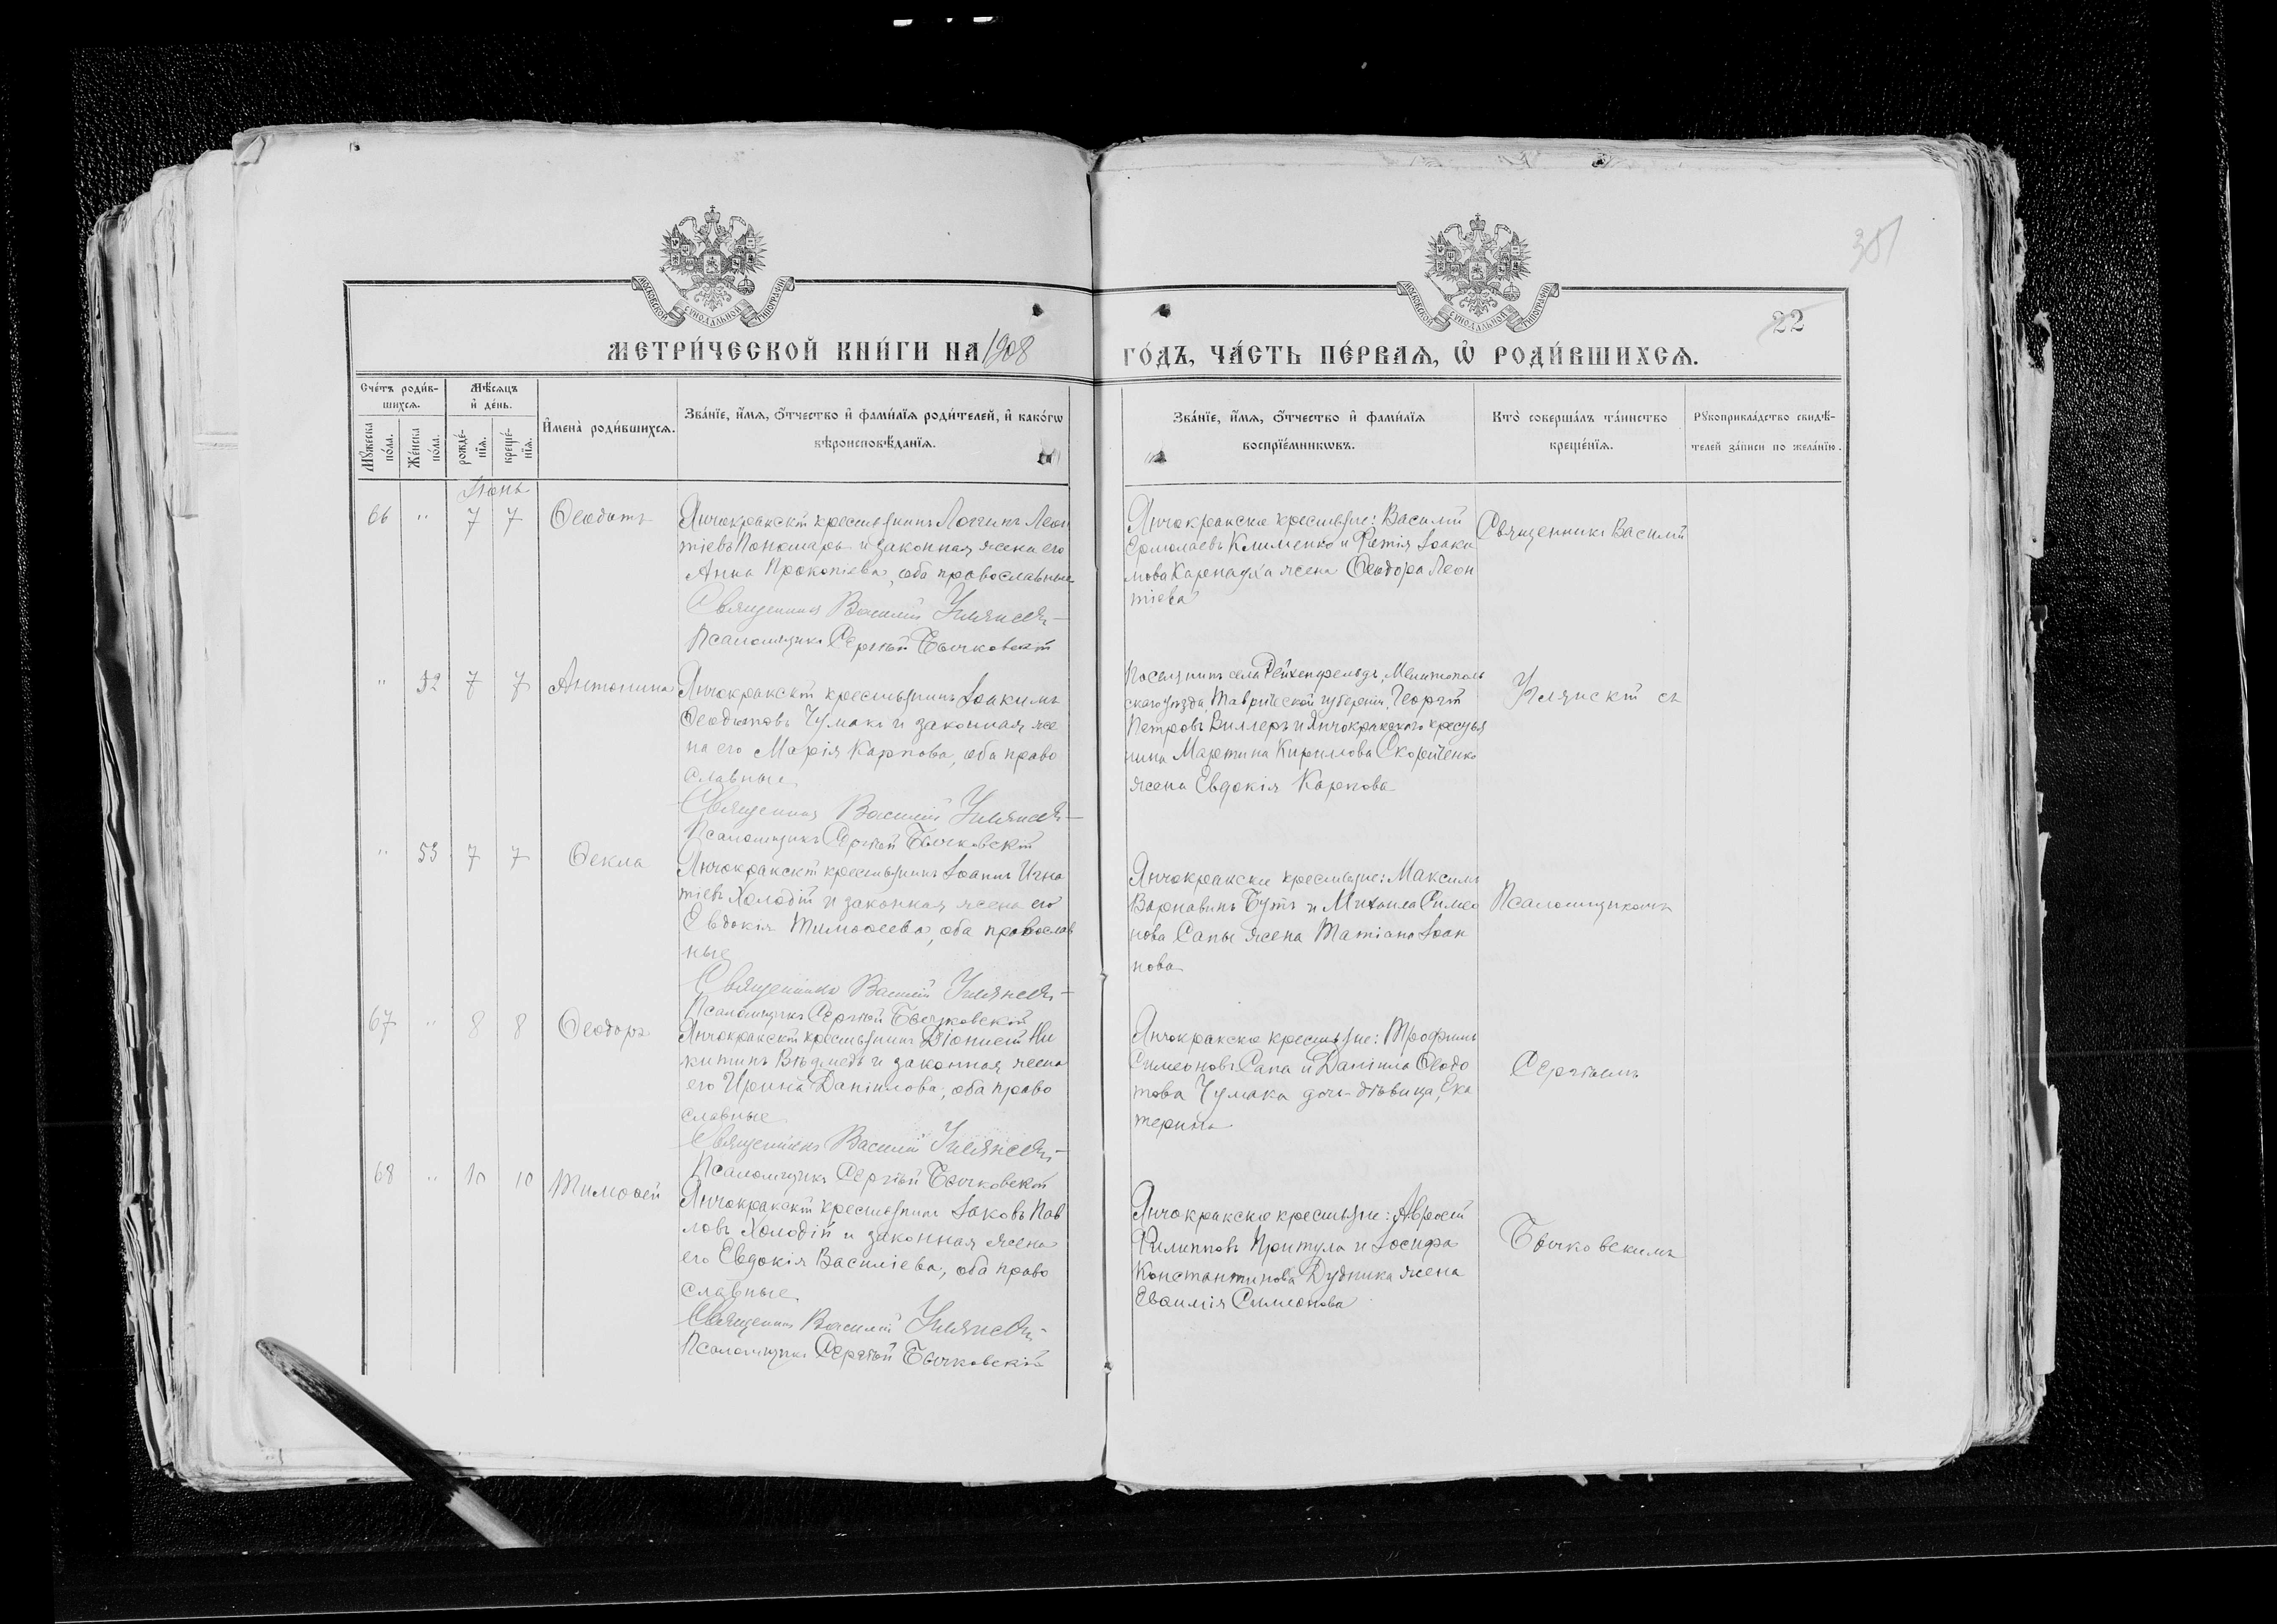 381
22
МОСКОВСКОЙ СУНОДАЛЬНОЙ ТИПОГРАФІИ
МОСКОВСКОЙ СУНОДАЛЬНОЙ ТИПОГРАФІИ
МЕТРИ́ЧЕСКОЙ КНИ́ГИ НА 1908
ГО́ДЪ, ЧА́СТЬ ПЕ́РВАѦ, Ѡ҆ РОДИ́ВШИХСѦ.
Сче́тъ роди́в-
шихсѧ.
Мꙋ́жеска
по́ла.
Же́нска
по́ла.
Мѣ́сѧцъ
и҆ де́нь.
рожде́-
нїѧ.
креще́-
нїѧ.
И҆мена̀ роди́вшихсѧ.
Зва́нїе, и҆́мѧ, ѻ҆́тчество и҆ фами́лїѧ роди́телей, и҆ како́гѡ
вѣроисповѣ́данїѧ.
Зва́нїе, и҆́мѧ, ѻ҆́тчество и҆ фами́лїѧ
воспрїе́мникѡвъ.
Кто̀ соверша́лъ та́инство
креще́нїѧ.
Рꙋкоприкла́дство свидѣ́-
телей за́писи по жела́нїю.
Іюнь
66 " 7 7 Ѳеодотъ
Янчокракскій крестьянинъ Логгинъ Леон
тіевъ Пономарь и законная жена его
Анна Прокопіева, оба православные
Священникъ Василій Улянскій
Псаломщикъ Сергѣй Бычковскій
Янчокракскіе крестьяне: Василій
Ермолаевъ Клименко и Фотія Іоаки
мова Карнауха жена Ѳеодора Леон
тіева
Священникъ Василій
" 52 7 7 Антонина
Янчокракскій крестьянинъ Іоакимъ
Ѳеодотовъ Чумакъ и законная же
на его Марія Карпова, оба право
славные
Священникъ Василій Улянскій
Псаломщикъ Сергѣй Бычковскій
Поселянинъ села Рейхенфельдъ, Мелитополь
скаго уѣзда, Таврической губерніи, Георгій
Петровъ Виллеръ и Янчокракского крестья
нина Мартина Кирилова Скориченко
жена Евдокія Карпова
Улянскій съ
" 53 7 7 Ѳекла
Янчокракскій крестьянинъ Іоаннъ Игна
тіевъ Холодій и законная жена его
Евдокія Тимоѳеева, оба православ
ные
Священникъ Василій Улянскій
Псаломщикъ Сергѣй Бычковскій
Янчокракскіе крестьяне: Максимъ
Варнавинъ Бутъ и Михаила Симео
нова Сапы жена Татіана Іоан
нова
Псаломщикомъ
67 " 8 8 Ѳеодоръ
Янчокракскій крестьянинъ Діонисій Ни
китинъ Вѣдмедь и законная жена
его Ирина Даніилова, оба право
славные
Священникъ Василій Улянскій
Псаломщикъ Сергѣй Бычковскій
Янчокракскіе крестьяне: Трофимъ
Симеоновъ Сапа и Даніила Ѳеодо
това Чумака дочь-дѣвица, Ека
терина
Сергѣемъ
68 " 10 10 Тимоѳей
Янчокракскій крестьянинъ Іаковъ Пав
ловъ Холодій и законная жена
его Евдокія Василіева, оба право
славные
Священникъ Василій Улянскій
Псаломщикъ Сергѣй Бычковскій
Янчокракскіе крестьяне: Авксій
Филипповъ Притула и Іосифа
Константинова Дудника жена
Евѳимія Симеонова
Бычковскимъ